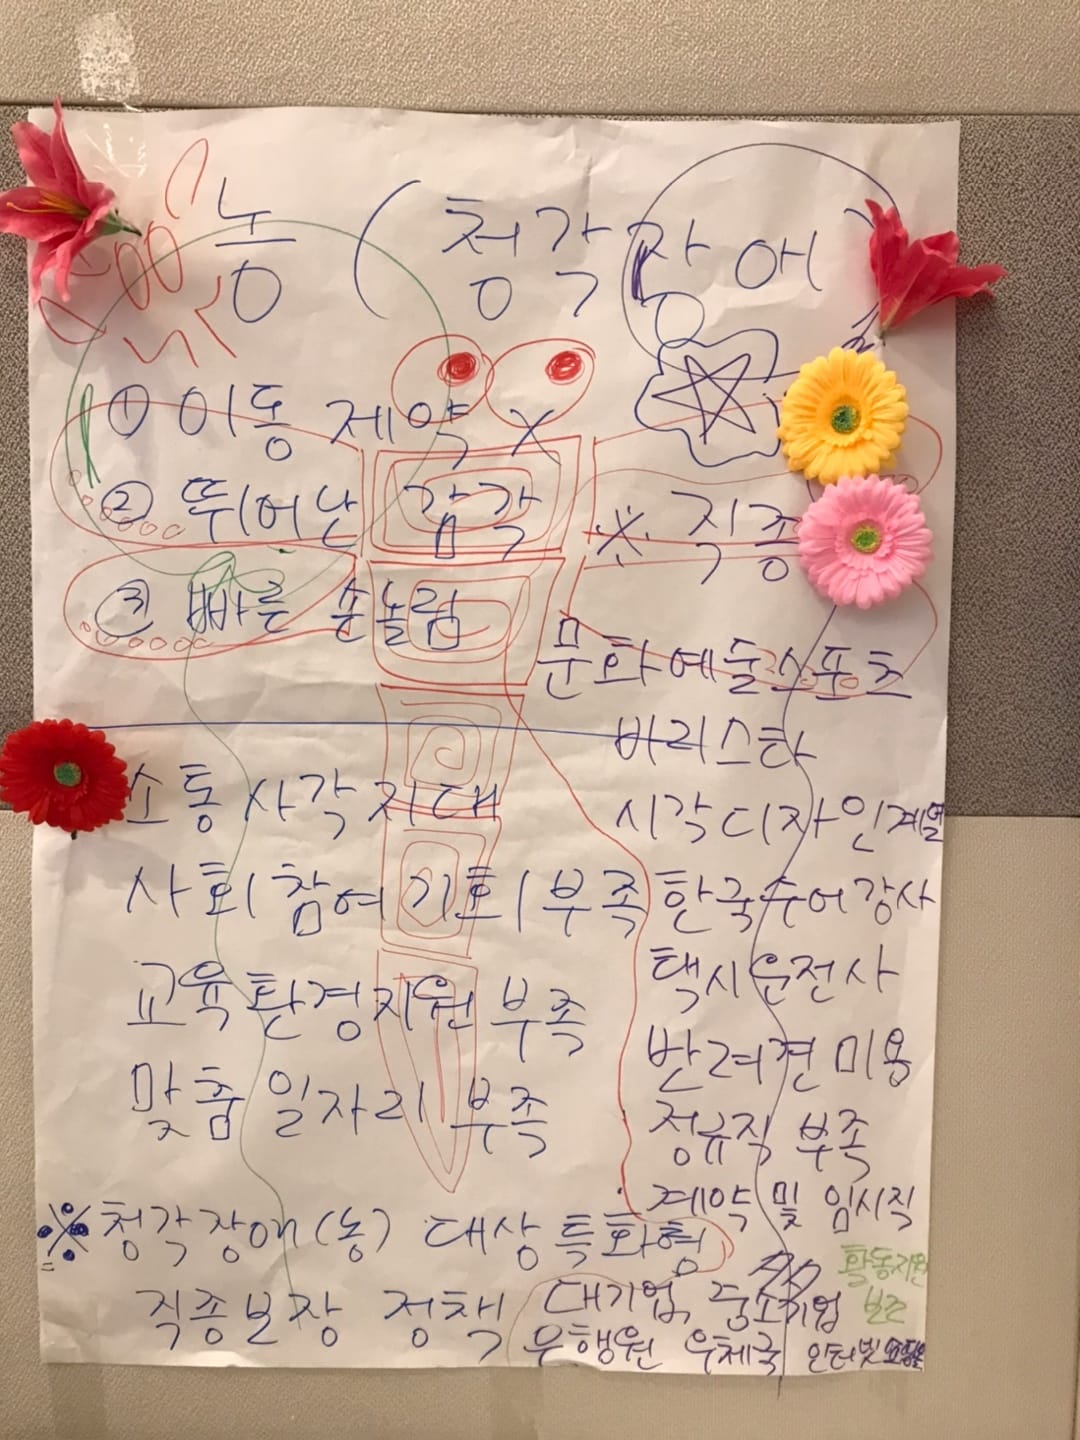 농 (청각장애)
① 이동 제약 X
② 뛰어난 감각
③ 빠른 손놀림
※ 직종
문화예술스포츠
바리스타
시각디자인계열
한국수어강사
택시운전사
반려견 미용
정규직 부족
계약 및 임시직
소통 사각지대
사회참여 기회 부족
교육환경지원 부족
맞춤 일자리 부족
※ 청각장애(농) 대상 특화형
직종보장 정책
대기업, 중소기업
우체국 인터넷
활동지원